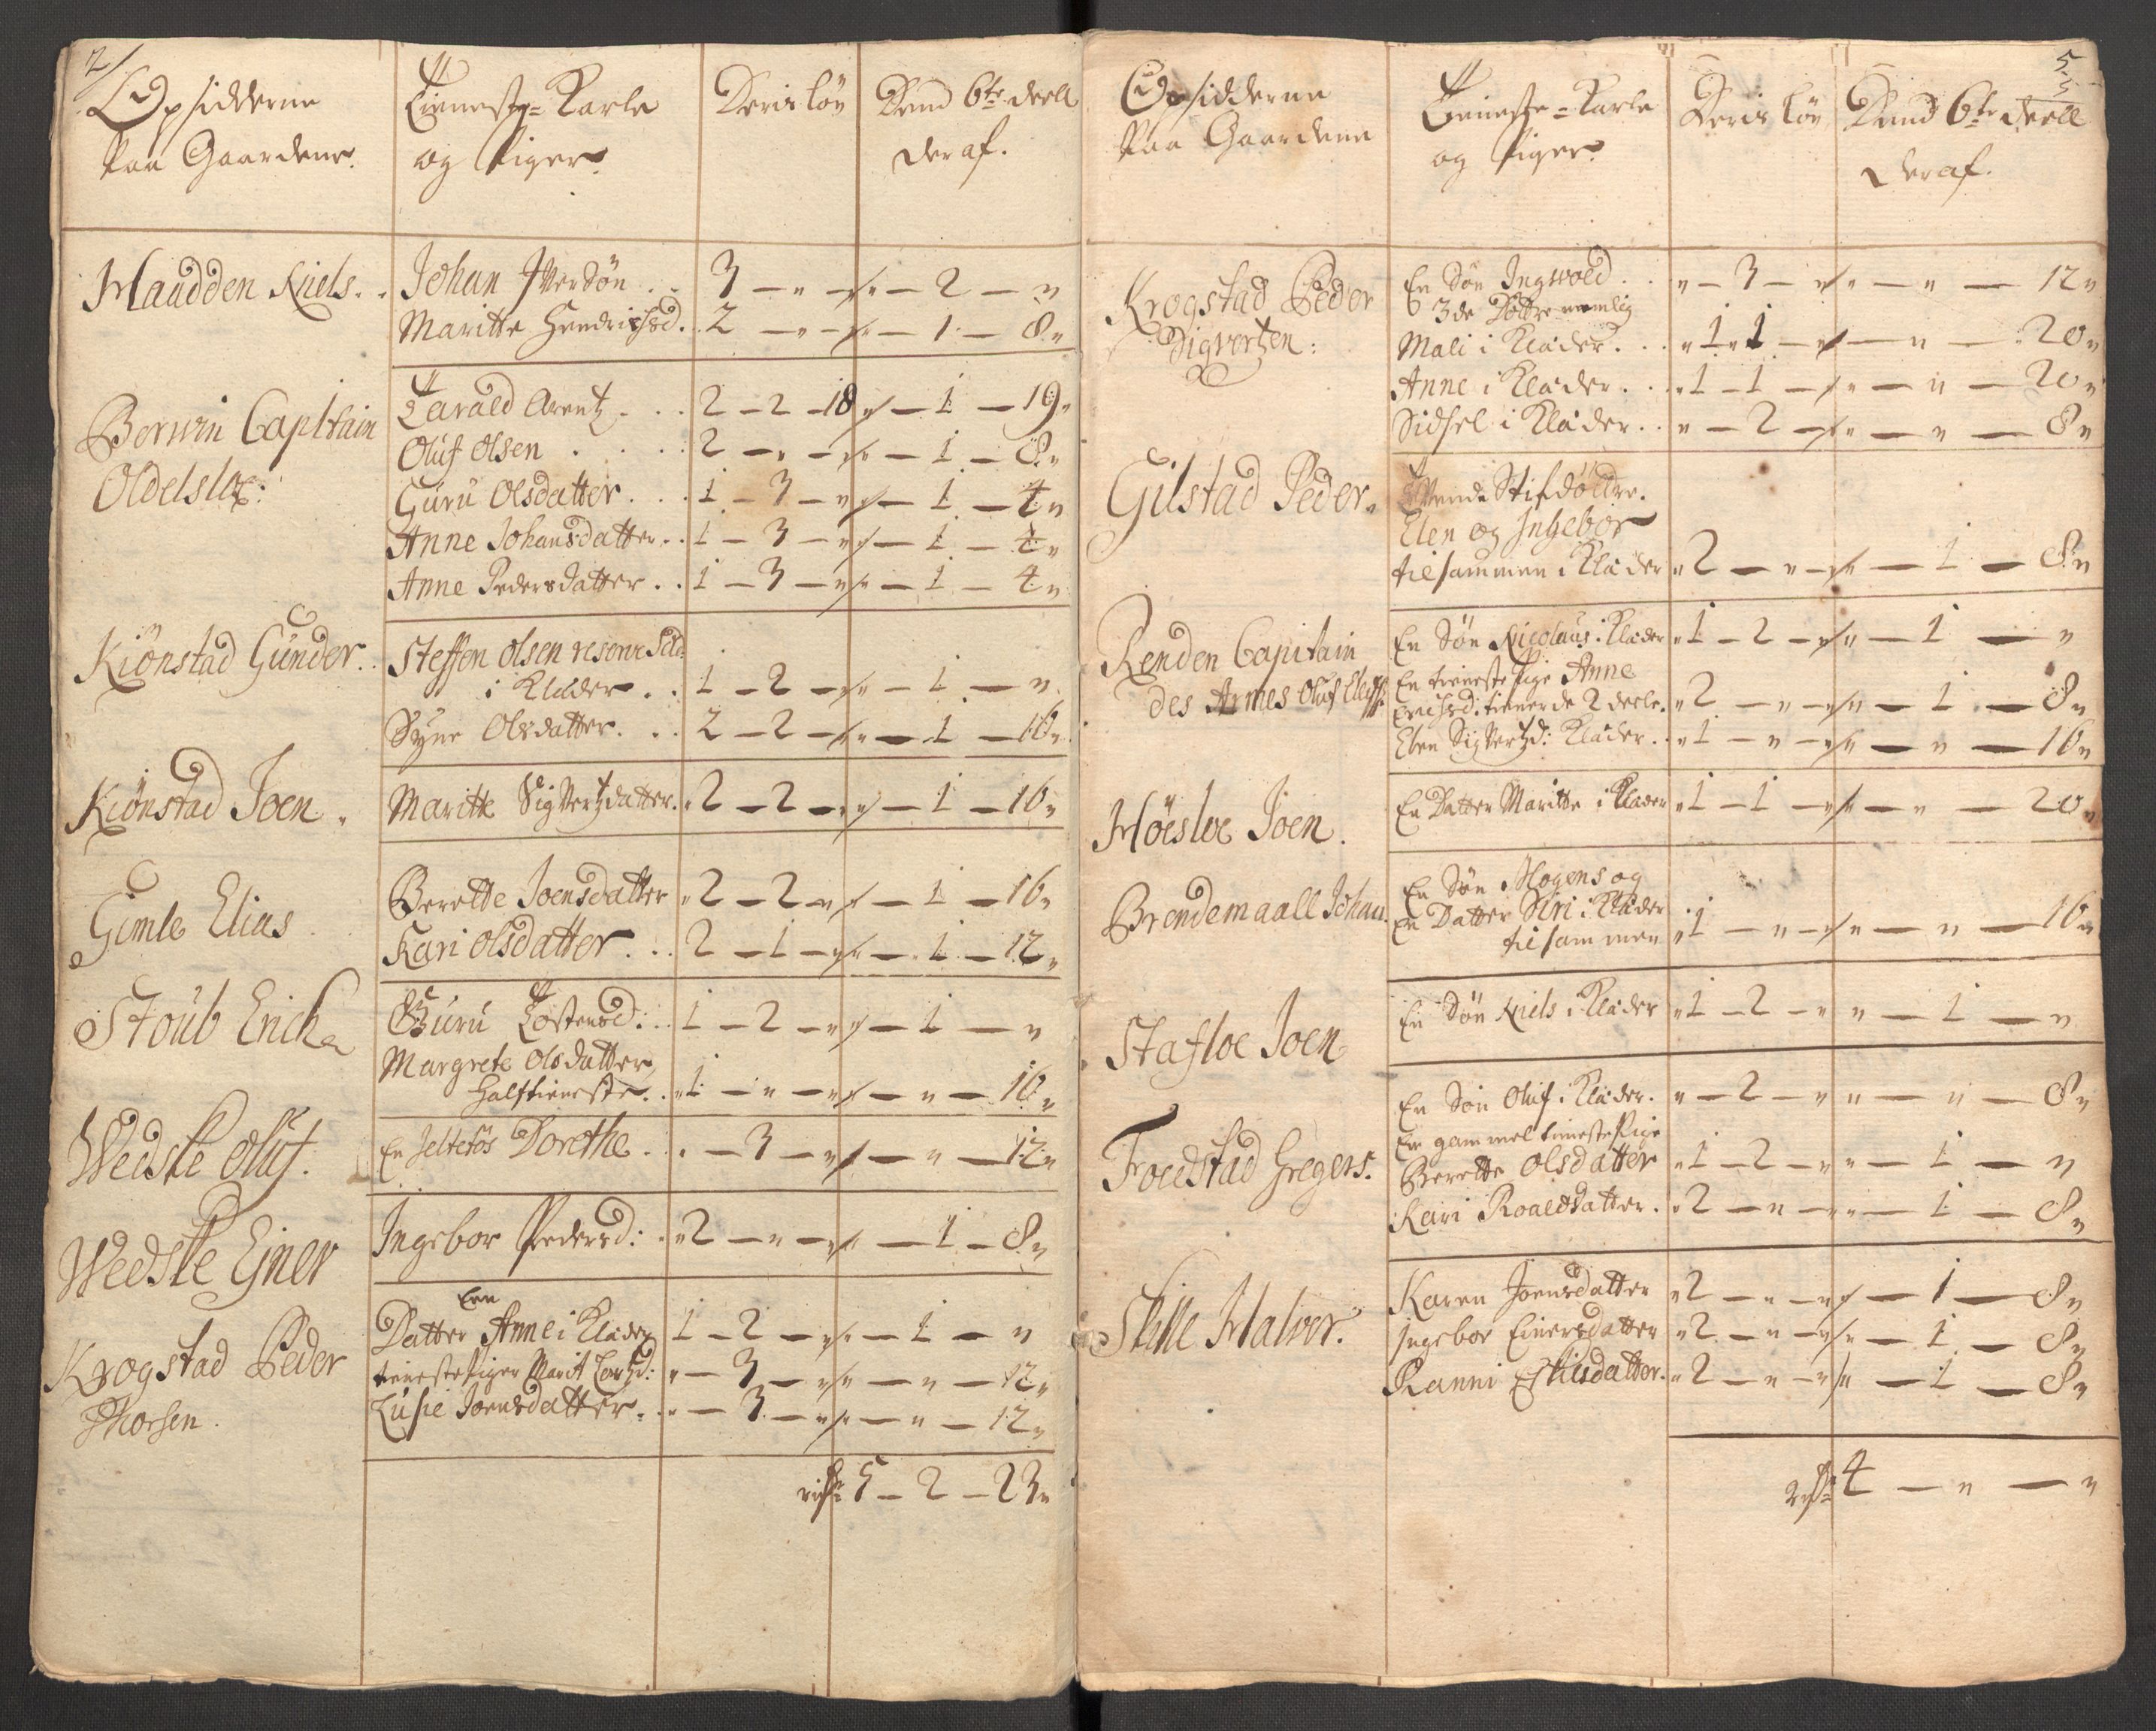 2/
Opsidderne
Paa Gaardene.
Tieneste-Karle
og Piger.
Deris Løn
Dend 6te deell
deraf.
Haudden Niels. . Johan Iversøn . . 3 — " — " — 2 — "
Maritte Hendrichsd. . 2 — " — " — 1 — 8 "
Berwin Capitain
Oldelsloe:
Tarald Arentz . . . 2 — 2 — 18 " — 1 — 19 "
Oluf Olsen . . . . 2 — " — " — 1 — 8 "
Guru Olsdatter . . . 1 — 3 — " — 1 — 4 "
Anne Johansdatter . . 1 — 3 — " — 1 — 4 "
Anne Pedersdatter . . 1 — 3 — " — 1 — 4 "
Kiönstad Gunder. . Steffen Olsen reserve Sold:
i Klæder . . 1 — 2 — " — 1 — "
Syne Olsdatter. . . 2 — 2 — " — 1 — 16 "
Kiönstad Joen . Maritte Sigvertzdatter. " 2 — 2 — " — 1 — 16 "
Gimle Elias . Berette Joensdatter " 2 — 2 — " — 1 — 16 "
Kari Olsdatter . . . 2 — 1 — " — 1 — 12 "
Stoub Erich Guru Tostensd: . . 1 — 2 — " — 1 — "
Margrete Olsdatter
Halftieneste. . " 1 — " — " — " — 16 "
Wedste Oluf. En Jeltetös Dorethe . . — 3 — " — " — 12 "
Wedste Ejner Ingebor Pedersd: " 2 — " — " — 1 — 8 "
Krogstad Peder
Thorsen.
Een
Datter Anne i Klæder 1 — 2 — " — 1 — "
tienestePiger Marit Lartzd: " — 3 — " — " — 12 "
Lusie Joensdatter . . " — 3 — " — " — 12 "
5 — 2 — 23 "
5
Opsidderne
Paa Gaardene
Tieneste-Karle
og Piger.
Deris Løn
Dend 6te deell
deraf.
Krogstad Peder
Sigvertzen:
En Søn Ingwold . . " — 3 — " — " — 12 "
3de Döttre nemlig
Mali i Klæder . . . " 1 " 1 — " — " — 20 "
Anne i Klæder . . . " 1 — 1 — " — " — 20 "
Sidsel i Klæder . . " — 2 — " — " — 8 "
Gilstad Peder. Tvende Stifdöttre.
Elen og Ingebor
tilsammen i Klæder " 2 — " — " — 1 — 8 "
Renden Capitain
des Armes Oluf
En Søn Nicolaus i Klæder " 1 — 2 — " — 1 — "
En tieneste Pige Anne
tiener de 2 deele. " 2 — " — " — 1 — 8 "
Elen Sigvertzd: Klæder . . " 1 — " — " — " — 16 "
Höesloe Joen. En Datter Maritte i Klæder " 1 — 1 — " — " — 20 "
Brendemaall Johan En Søn Mogens og
En Datter Siri i Klæder
tilsammen " 1 — " — " — " — 16 "
Stafloe Joen En Søn Niels i Klæder " 1 — 2 — " " — 1 — "
Foedstad Gregers. En Søn Oluf i Klæder. " — 2 — " " — " — 8 "
En gammel tienestePige
Berette Olsdatter " 1 — 2 — " " — 1 — "
Kari Roaldsdatter. " 2 — " — " " — 1 — 8 "
Skille Halver. Karen Joensdatter " 2 — " — " — 1 — 8 "
Ingebor Einersdatter " 2 — " — " — 1 — 8 "
Ranni Eskilsdatter. " 2 — " — " — 1 — 8 "
4 — " — "